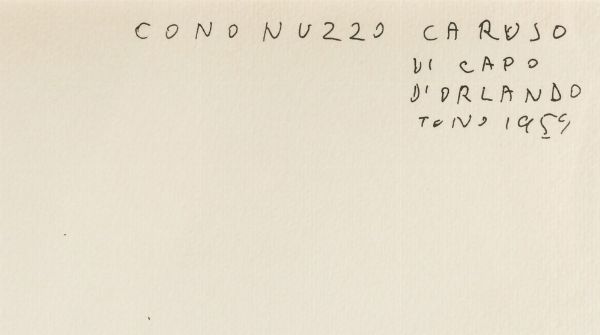 CONO NUZZO CARUSO
DI CAPO
D'ORLANDO
TONO 1959